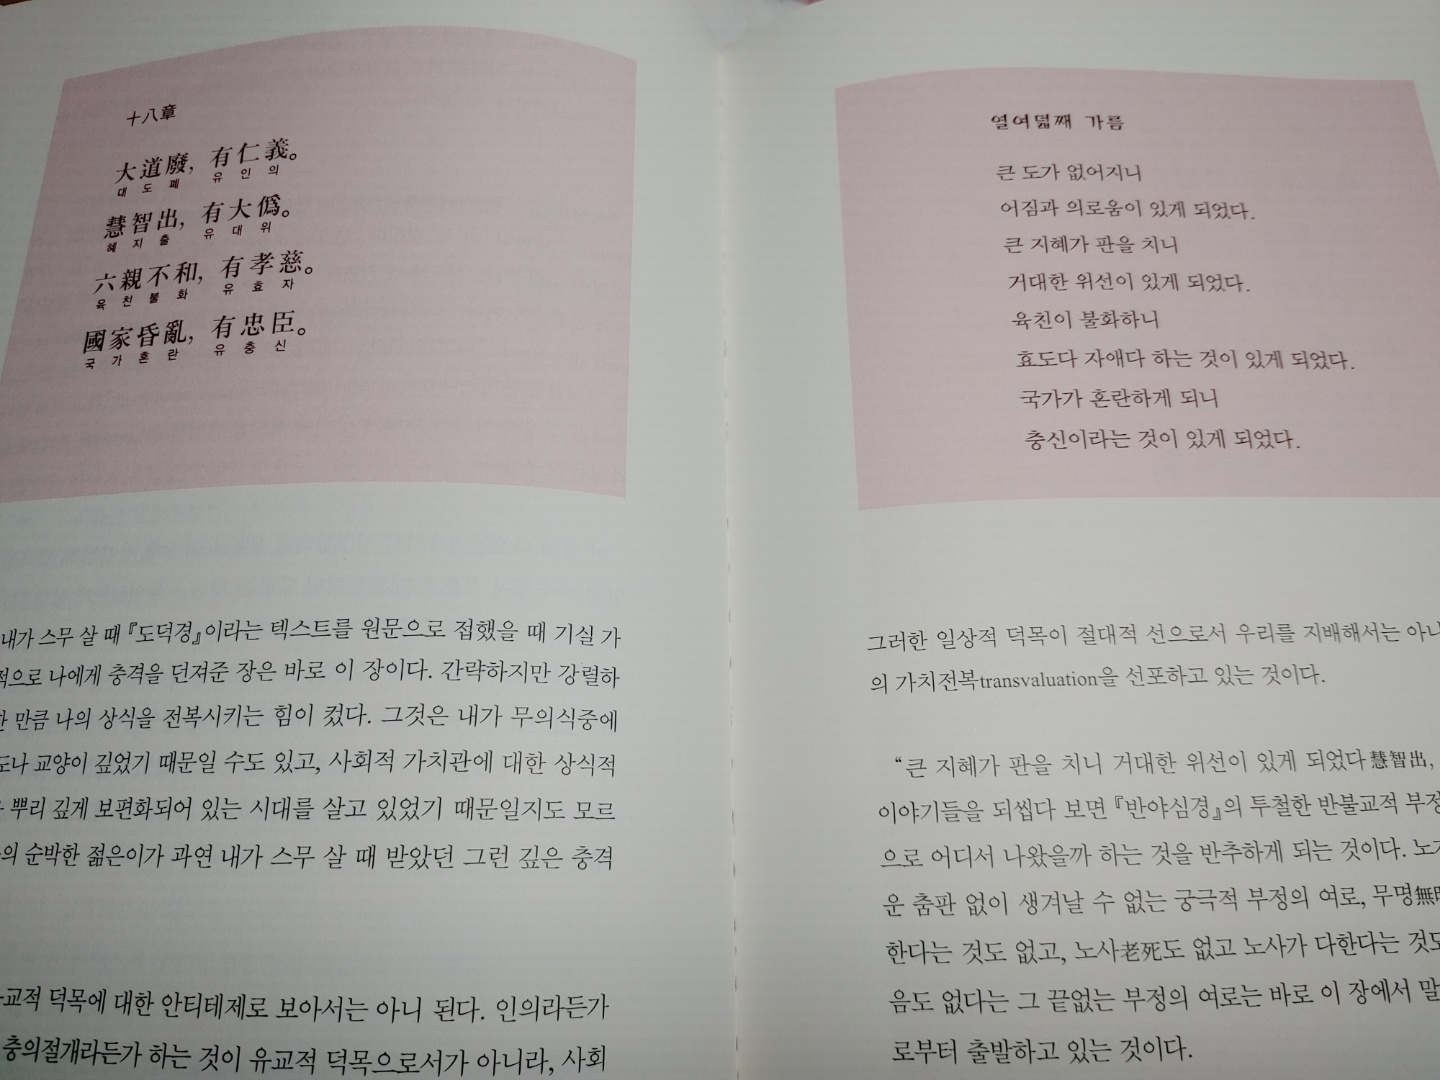 十八章
大道廢, 有仁義。
대도폐 유인의
慧智出, 有大僞。
혜지출 유대위
六親不和, 有孝慈。
육친불화 유효자
國家昏亂, 有忠臣。
국가혼란 유충신
내가 스무 살 때 『도덕경』이라는 텍스트를 원문으로 접했을 때 기실 가
적으로 나에게 충격을 던져준 장은 바로 이 장이다. 간략하지만 강렬하
만큼 나의 상식을 전복시키는 힘이 컸다. 그것은 내가 무의식중에
교양이 깊었기 때문일 수도 있고, 사회적 가치관에 대한 상식적
뿌리 깊게 보편화되어 있는 시대를 살고 있었기 때문일지도 모르
의 순박한 젊은이가 과연 내가 스무 살 때 받았던 그런 깊은 충격
교적 덕목에 대한 안티테제로 보아서는 아니 된다. 인의라든가
충의절개라든가 하는 것이 유교적 덕목으로서가 아니라, 사회
열여덟째 가름
큰 도가 없어지니
어짐과 의로움이 있게 되었다.
큰 지혜가 판을 치니
거대한 위선이 있게 되었다.
육친이 불화하니
효도다 자애다 하는 것이 있게 되었다.
국가가 혼란하게 되니
충신이라는 것이 있게 되었다.
그러한 일상적 덕목이 절대적 선으로서 우리를 지배해서는 아니
의 가치전복transvaluation을 선포하고 있는 것이다.
“큰 지혜가 판을 치니 거대한 위선이 있게 되었다慧智出,
이야기들을 되씹다 보면 『반야심경』의 투철한 반불교적 부정
으로 어디서 나왔을까 하는 것을 반추하게 되는 것이다. 노자
운 춤판 없이 생겨날 수 없는 궁극적 부정의 여로, 무명無明
한다는 것도 없고, 노사老死도 없고 노사가 다한다는 것도
음도 없다는 그 끝없는 부정의 여로는 바로 이 장에서 말
로부터 출발하고 있는 것이다.